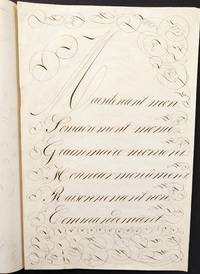 Maintenant mon
Souverement meme
Grammaire moment
Monnoir monument
Raisonnement non
Commandement